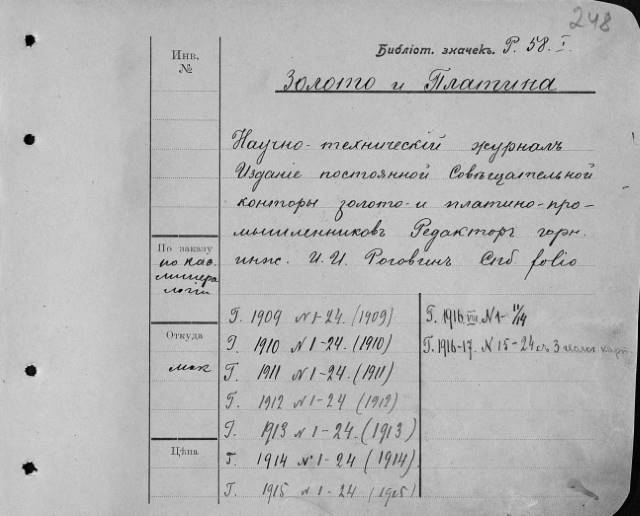 248
Инв.
№
Библіот. значекъ. Р. 58. I.
Золото и Платина
Научно-техническій журналъ
Изданіе постоянной Совѣщательной
конторы золото- и платино-про-
мышленниковъ Редакторъ горн.
инж. И. И. Роговинъ Спб folio
По заказу
по каѳ.
минера
логіи
Откуда
Цѣна
Г. 1909 N 1-24. (1909)
Г. 1910 N 1-24. (1910)
Г. 1911 N 1-24. (1911)
Г. 1912 N 1-24 (1912)
Г. 1913 N 1-24. (1913)
Г. 1914 N 1-24 (1914)
Г. 1915 N 1-24 (1915)
Г. 1916. VIII N 1-11/14
Г. 1916-17. N 15-24 съ 3